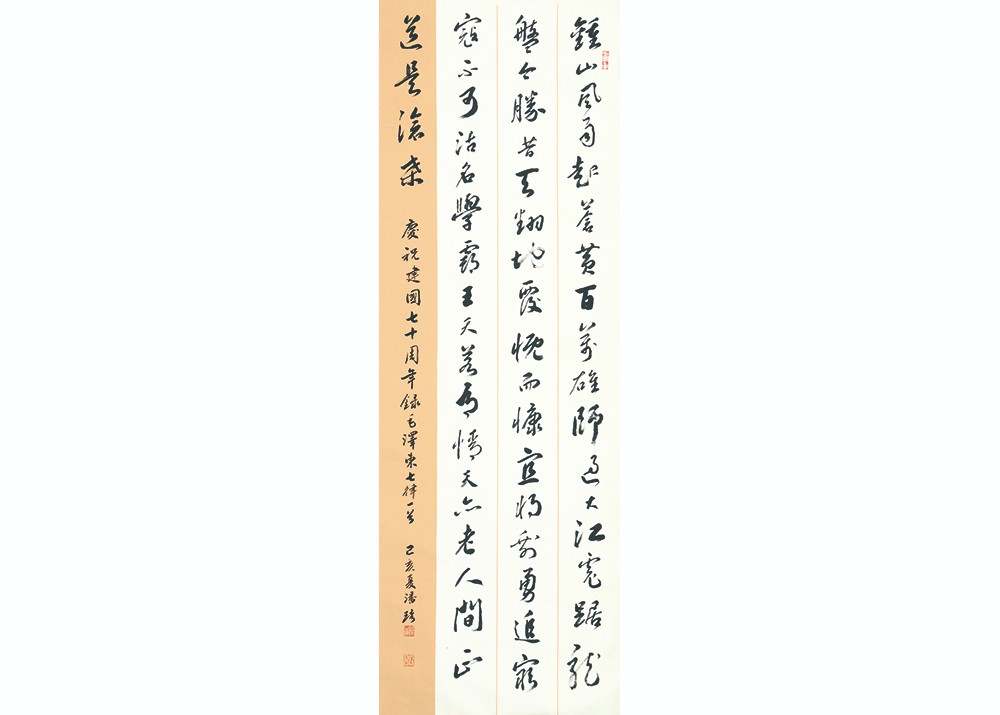 鍾山風雨起蒼黃百萬雄師過大江虎踞龍
盤今勝昔天翻地覆慨而慷宜將剩勇追窮
寇不可沽名學霸王天若有情天亦老人間正
道是滄桑 慶祝建國七十周年錄毛澤東七律一首 己亥夏潘琦